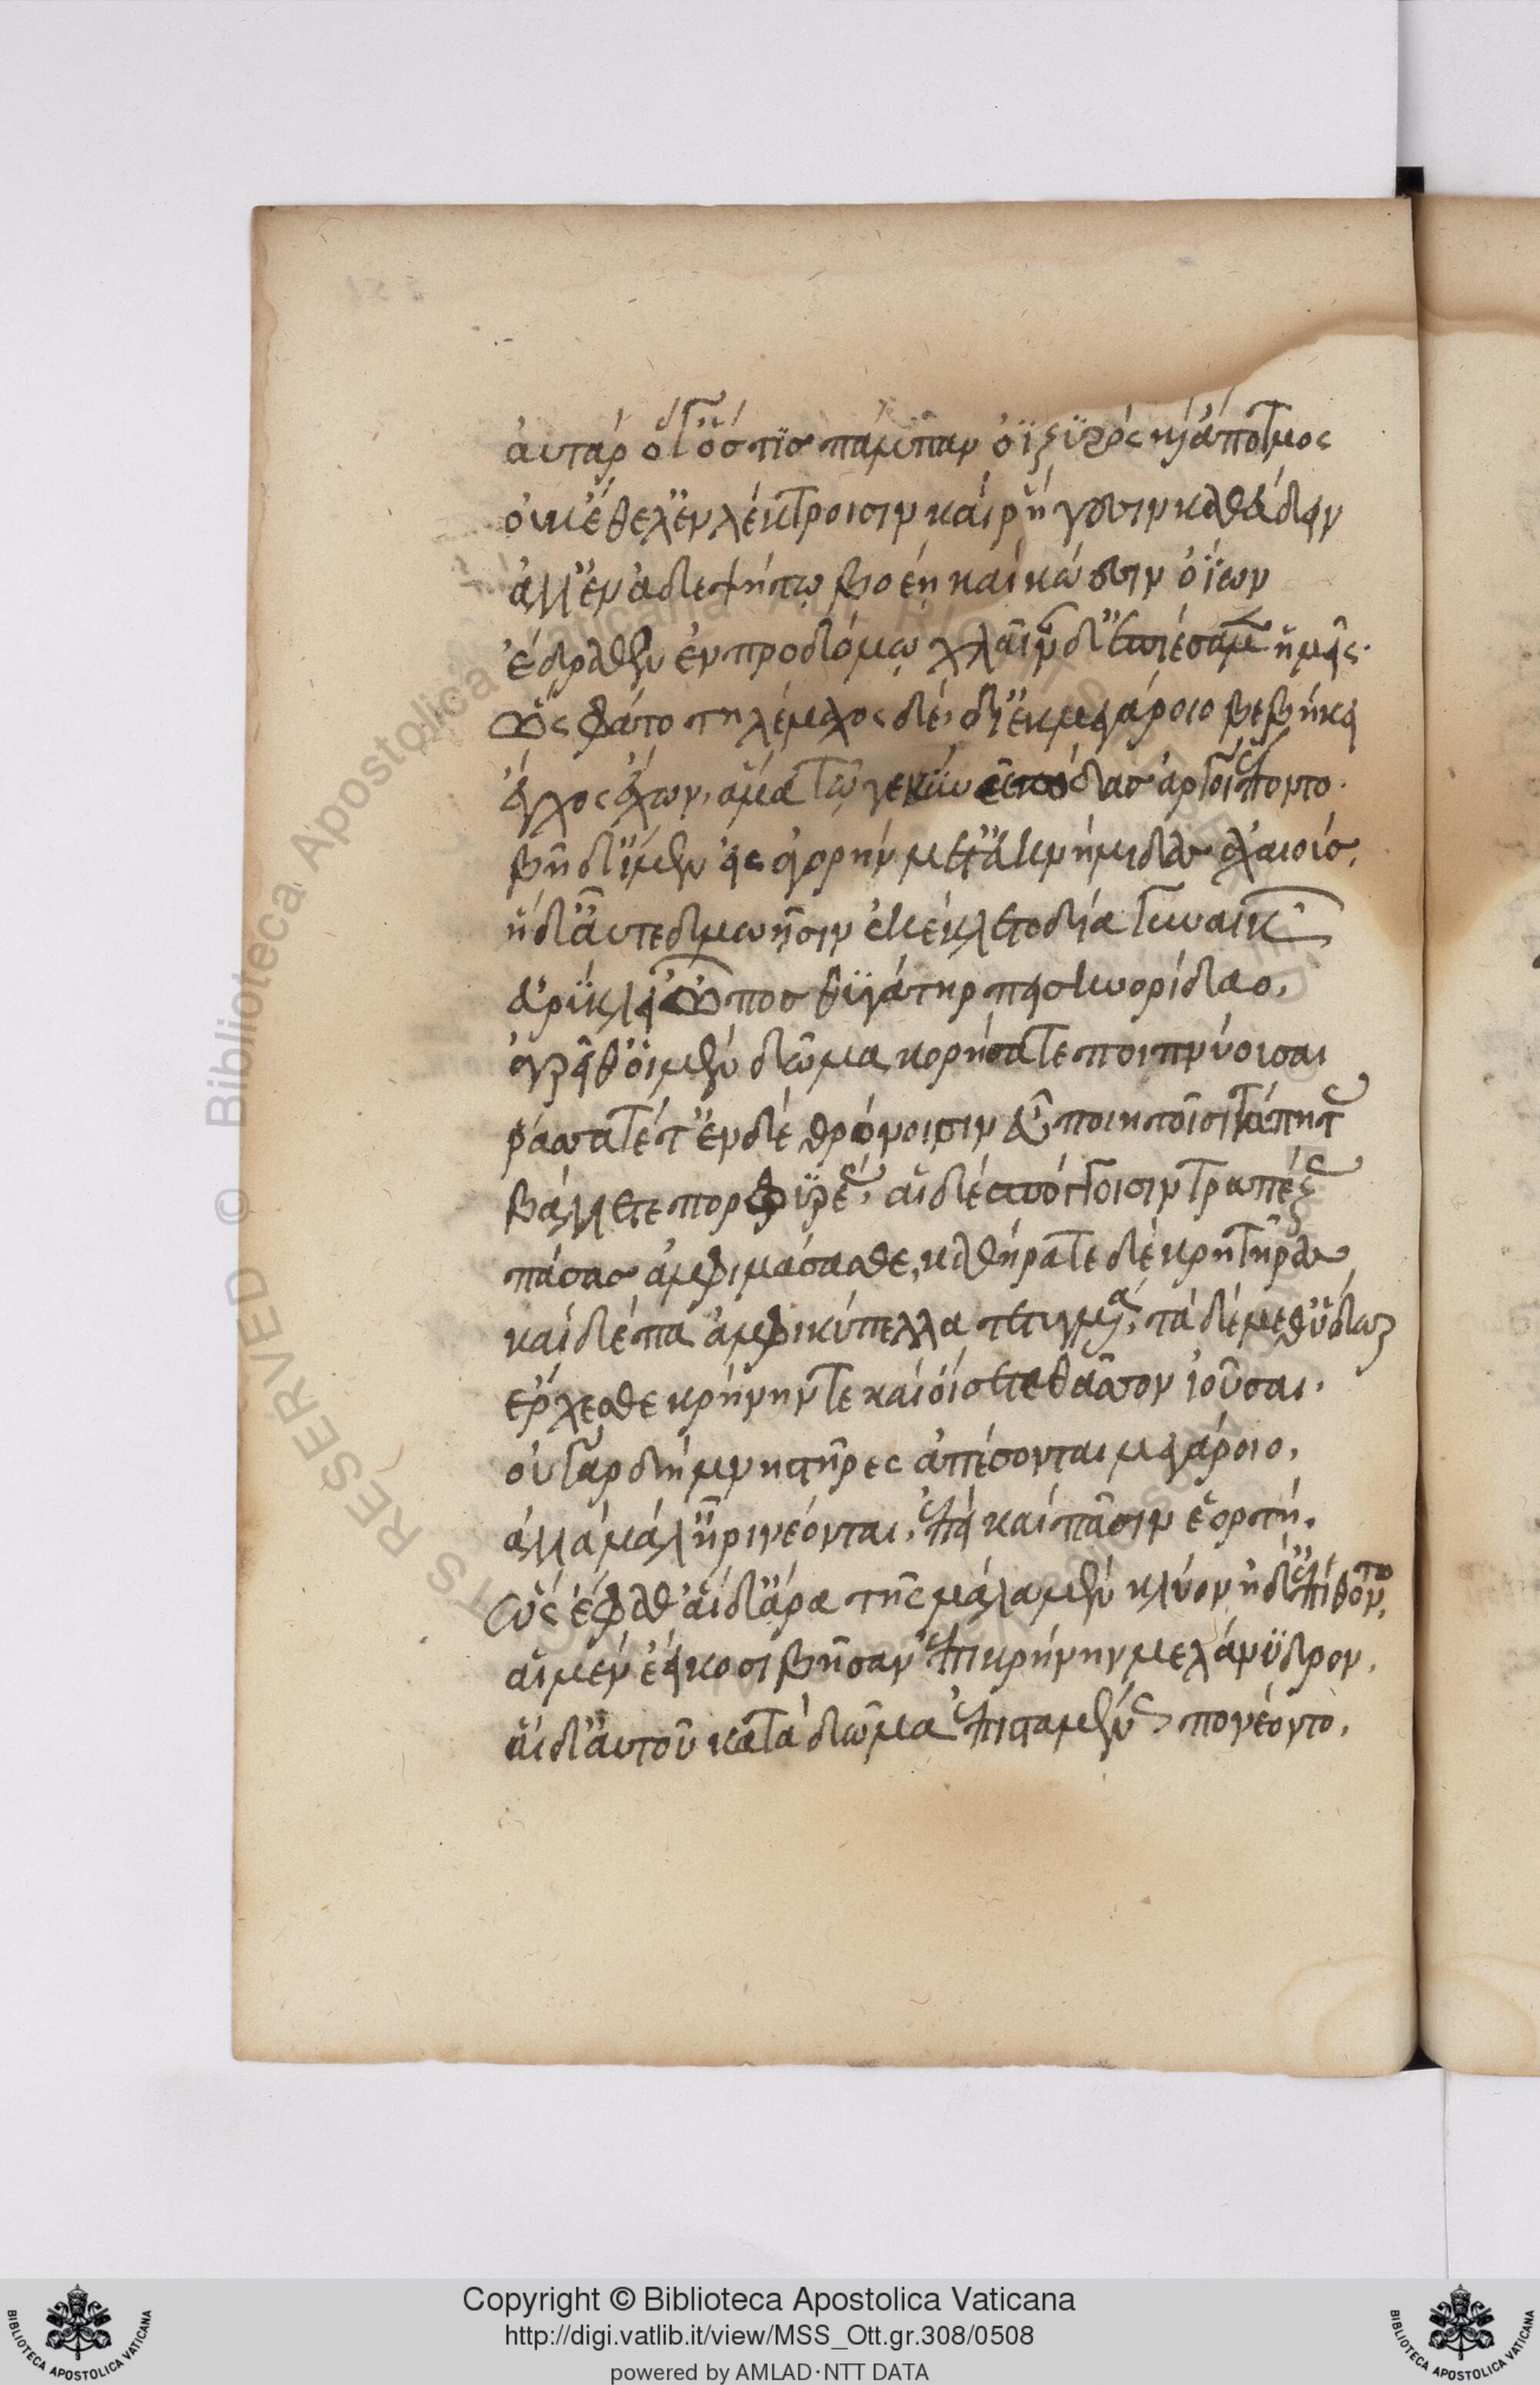 αὐτὰρ ὅ γ' ὥς τις πάμπαν ὀϊζυρὸς καὶ ἄποτμος
οὐκ ἔθελ' ἐν λέκτροισιν καὶ ῥήγεσιν καθεύδειν
ἀλλ' ἐν ἀδεψήτω βοέη καὶ κώεσιν οἰῶν
ἔδραθεν ἐν προδόμω χλαῖναν δ' ἐπιέσαμεν ἡμεῖς.
ὣς φάτο τηλέμαχος δὲ διεκ μεγάροιο βεβήκει
ἔγχος ἔχων, ἅμα τῶ γε κύνες πόδας ἀργοὶ ἕποντο.
βῆ δ' ἴμεν εἰς ἀγορὴν μετ' ἐϋκνήμιδας ἀχαιούς,
ἡ δ' αὖτε δμωῇσιν ἐκέκλετο δῖα γυναικῶν,
εὐρύκλει' ὦπος θυγάτηρ πεισηνορίδαο,
ἀγρεῖθ' αἱ μὲν δῶμα κορήσατε ποιπνύουσαι
ῥάσσατέ τ' ἔν δὲ θρόνοισιν εὐποιητοῖσι τάπητας
βάλλετε πορφυρέους, αἱ δὲ σπόγγοισιν τραπέζας
πάσας ἀμφιμάσασθε, καθήρατε δὲ κρητῆρας
καὶ δέπα ἀμφικύπελλα τετυγμένα, ταὶ δὲ μεθ' ὕδωρ
ἔρχεσθε κρήνηνδε καὶ οἴσετε θᾶσσον ἰοῦσαι.
οὐ γὰρ δὴν μνηστῆρες ἀπέσονται μεγάροιο,
ἀλλὰ μάλ' ἦρι νέονται, ἐπεὶ καὶ πᾶσιν ἑορτή.
ὣς ἔφαθ' αἱ δ' ἄρα τῆς μάλα μὲν κλύον ἠδ' ἐπίθοντο,
αἱ μὲν ἐείκοσι βῆσαν ἐπὶ κρήνην μελάνυδρον,
αἱ δ' αὐτοῦ κατὰ δῶμα ἐπισταμένως πονέοντο.
Copyright © Biblioteca Apostolica Vaticana
http://digi.vatlib.it/view/MSS_Ott.gr.308/0508
powered by AMLAD·NTT DATA